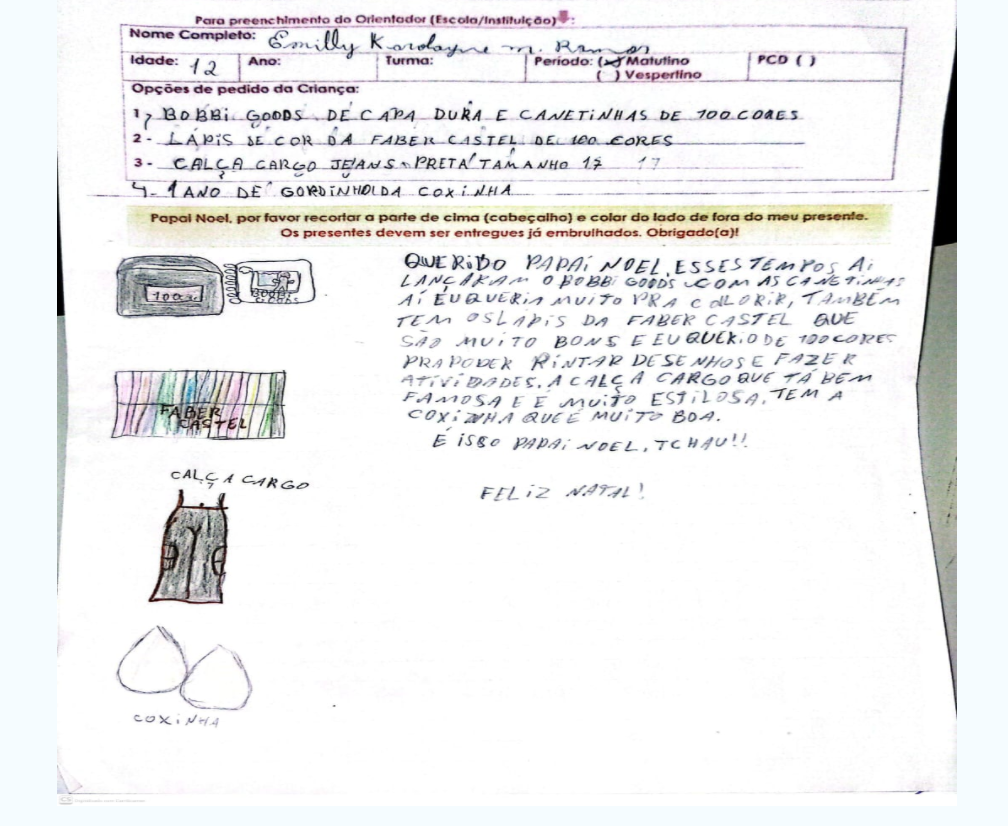 Para preenchimento do Orientador (Escola/Instituição):
Nome Completo: Emilly Karolayne M. Ramos
Idade: 12 Ano: Turma: Período: (x) Matutino PCD ( )
( ) Vespertino
Opções de pedido da Criança:
1, BOBBi GOODS DE CAPA DURA E CANETINHAS DE 100 CORES
2 - LÁPiS DE COR DA FABER CASTEL DE 100 CORES
3 - CALÇA CARGO JEANS PRETA TAMANHO 17 17
4- 1 ANO DE GORDiNHO DA COXiNHA
Papai Noel, por favor recortar a parte de cima (cabeçalho) e colar do lado de fora do meu presente.
Os presentes devem ser entregues já embrulhados. Obrigado(a)!
QUERiDO PAPAi NOEL, ESSES TEMPOS Ai
LANÇARAM O BOBBi GOODS COM AS CANETiNHAS
Ai EU QUERiA MUiTO PRA COLORiR, TAMBÉM
TEM OS LAPiS DA FABER CASTEL QUE
SÃO MUiTO BONS E EU QUERiO DE 100 CORES
PRA PODER PiNTAR DESENHOS E FAZER
ATiViDADES. A CALÇA CARGO QUE TÁ BEM
FAMOSA E É MUiTO ESTiLOSA, TEM A
COXiNHA QUE É MUiTO BOA.
É iSSO PAPAi NOEL, TCHAU!!
FELiZ NATAL!
100
BOBBi GOODS
FABER
CASTEL
CALÇA CARGO
COXiNHA
CS